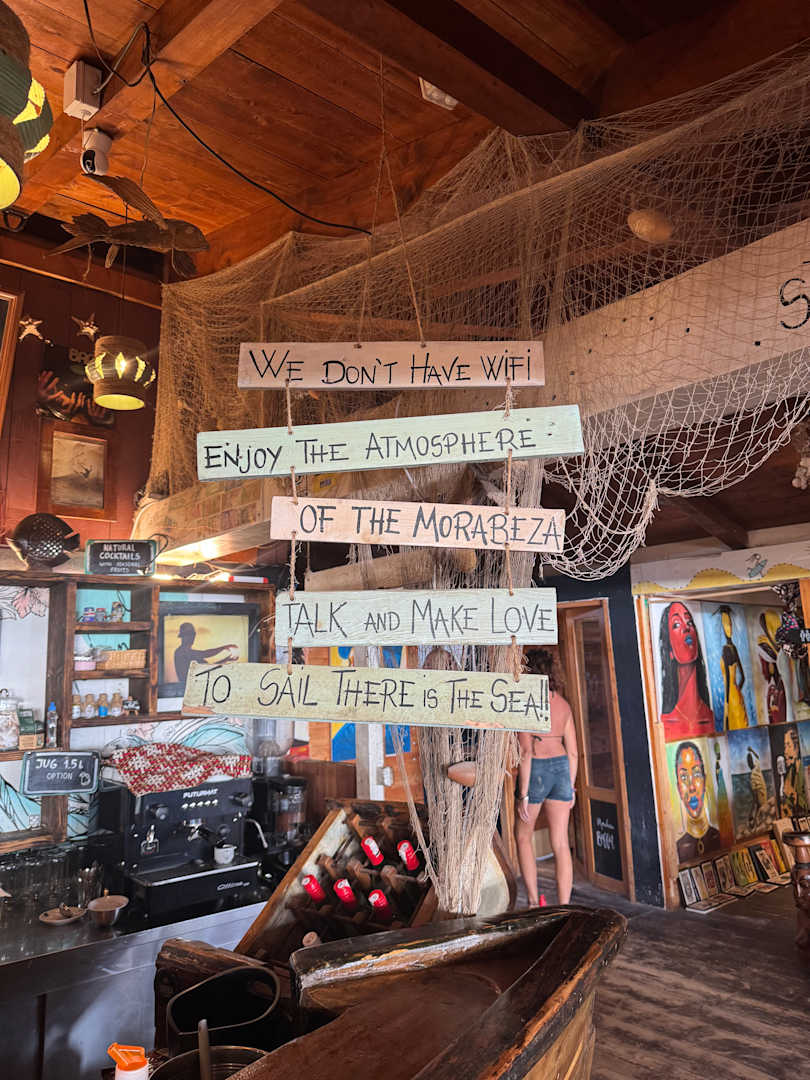 WE DON'T HAVE WIFI
ENJOY THE ATMOSPHERE
OF THE MORABEZA
TALK AND MAKE LOVE
TO SAIL THERE IS THE SEA!!
NATURAL
COCKTAILS
WITH SEASONAL
FRUITS
JUG 1.5L
OPTION
FUTURMAT